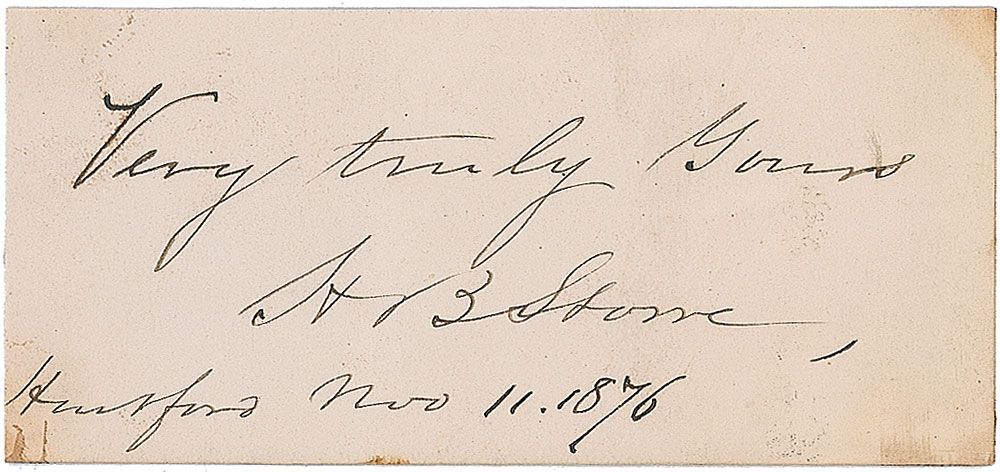 Very truly Yours
H B Stowe
Hartford Nov 11. 1876